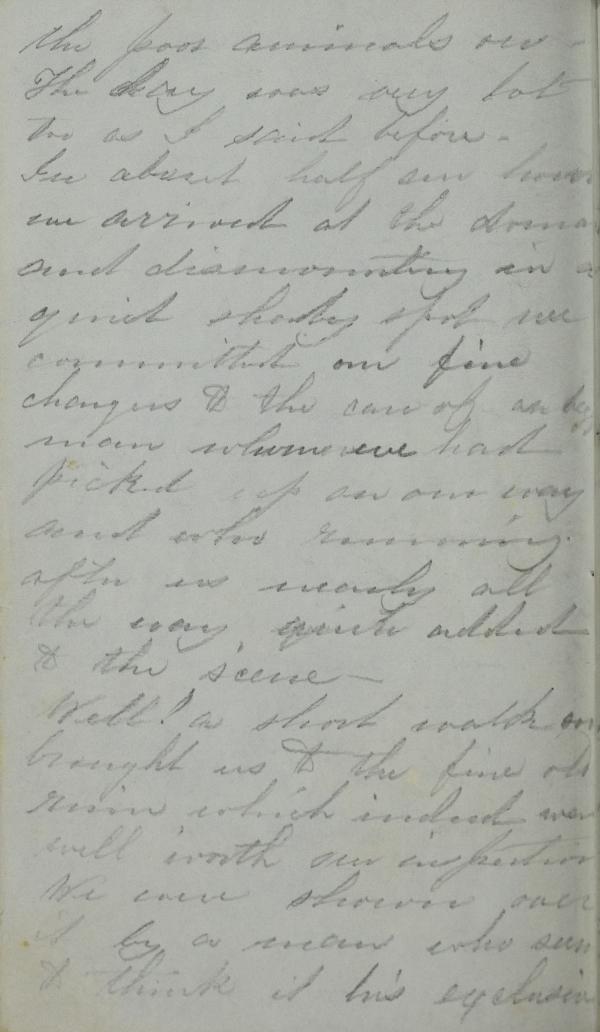 the poor animals on -
The day was very hot
too as I said before -
In about half an hour
we arrived at the
and dismounting in a
quiet shady spot we
committed our fine
chargers to the care of an
man whome we had
picked up on our way
and who running
after us nearly all
the way, quite added
to the scene -
Well! a short walk on
brought us to the fine old
ruin which indeed was
well worth our inspection
We were shown over
it by a man who seem
to think it his exclusive